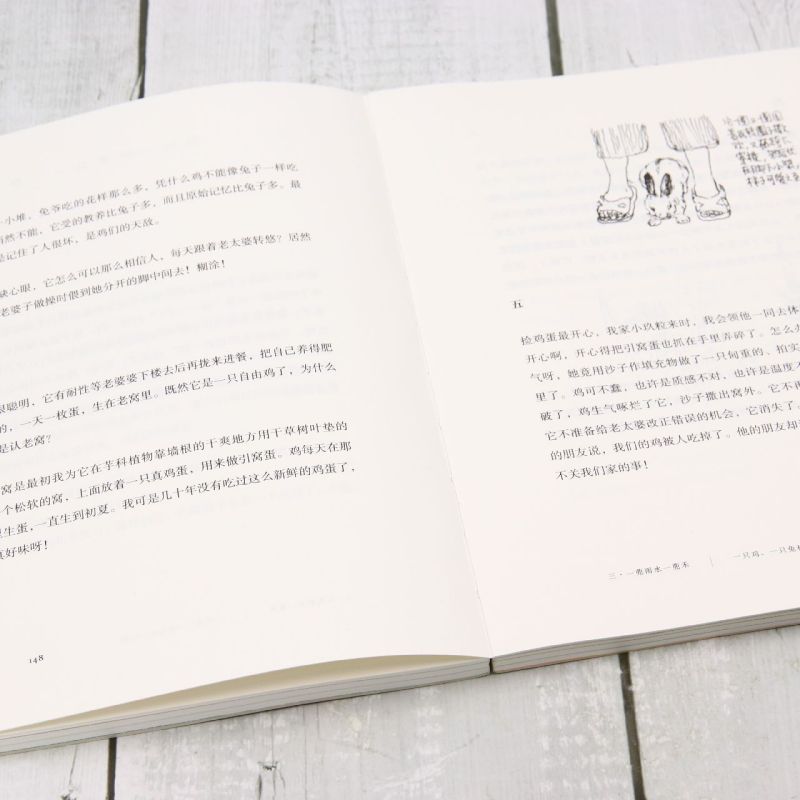 一小堆，兔爷吃的花样那么多，凭什么鸡不能像兔子一样吃
当然不能，它受的教养比兔子多，而且原始记忆比兔子多。最
是记住了人很坏，是鸡们的天敌。
缺心眼，它怎么可以那么相信人，每天跟着老太婆转悠？居然
老婆子做操时偎到她分开的脚中间去！糊涂！
很聪明，它有耐性等老婆婆下楼去后再拢来进餐，把自己养得肥
的，一天一枚蛋，生在老窝里。既然它是一只自由鸡了，为什么
是认老窝？
窝是最初我为它在芋科植物靠墙根的干爽地方用干草树叶垫的
个松软的窝，上面放着一只真鸡蛋，用来做引窝蛋。鸡每天在那
里生蛋，一直生到初夏。我可是几十年没有吃过这么新鲜的鸡蛋了，
真好味呀！
148
五
捡鸡蛋最开心，我家小玖粒来时，我会领他一同去体
开心啊，开心得把引窝蛋也抓在手里弄碎了。怎么办
气呀，她竟用沙子作填充物做了一只旬重的、拍实
里了。鸡可不蠢，也许是质感不对，也许是温度不
破了，鸡生气啄烂了它，沙子撒出窝外。它不再
它不准备给老太婆改正错误的机会，它消失了。
的朋友说，我们的鸡被人吃掉了。他的朋友却说
不关我们家的事！
三·一蔸雨水一蔸禾 一只鸡、一只兔